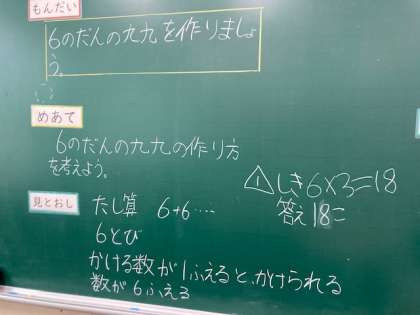 もんだい
6のだんの九九を作りましょ
う。
めあて
6のだんの九九の作り方
を考えよう。
見とおし
たし算 6+6‥‥
6とび
かける数が1ふえると、かけられる
数が6ふえる
⚠しき6×3=18
答え18こ